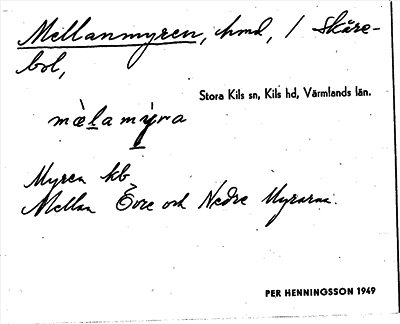 Mellanmyren, hmd, 1 Skåre-
bol,
Stora Kils sn, Kils hd, Värmlands län.
mèlamýra
Myren kb
Mellan Övre och Nedre Myrarna.
PER HENNINGSSON 1949